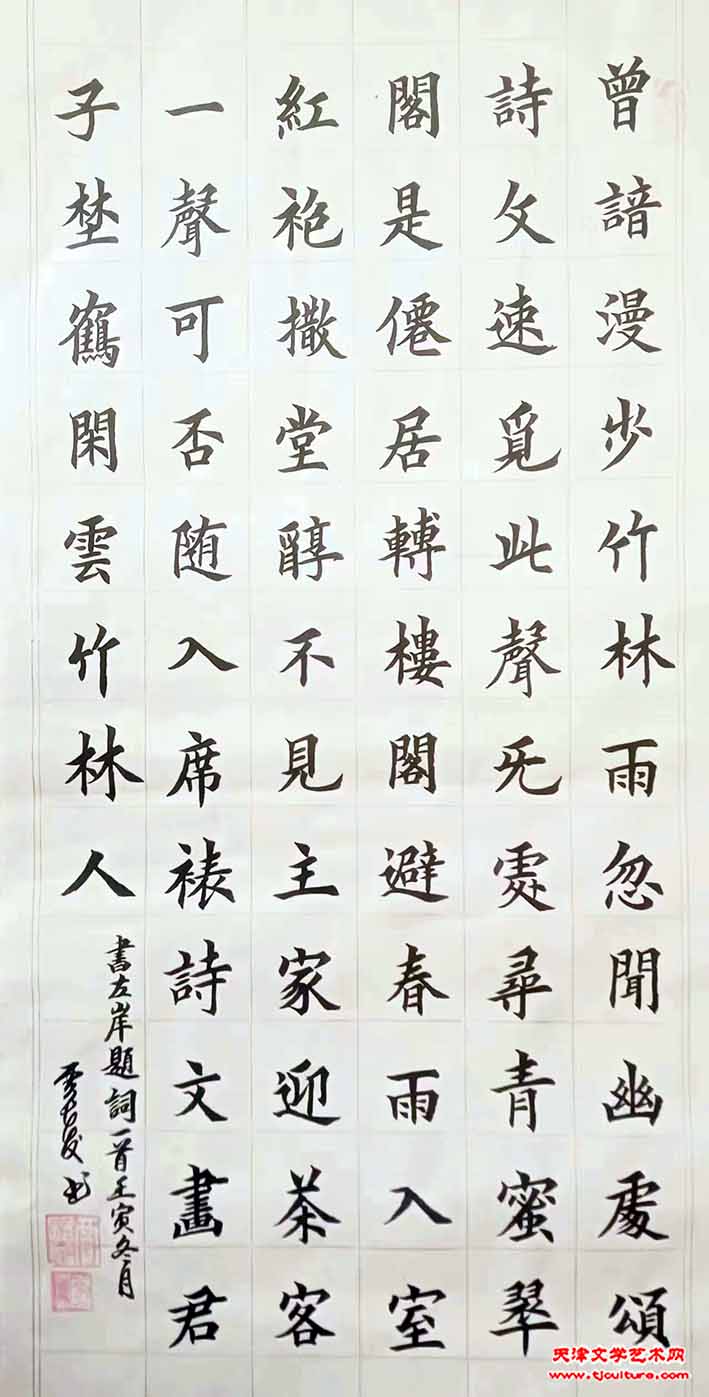 曾諳漫步竹林雨忽聞幽處頌
詩文速覓此聲无處尋青蜜翠
閣是僊居轉樓閣避春雨入室
紅袍撒堂醇不見主家迎茶客
一聲可否随入席裱詩文畫君
子埜鶴閑雲竹林人
書左岸題詞一首壬寅冬月
天津文学艺术网
www.tjculture.com